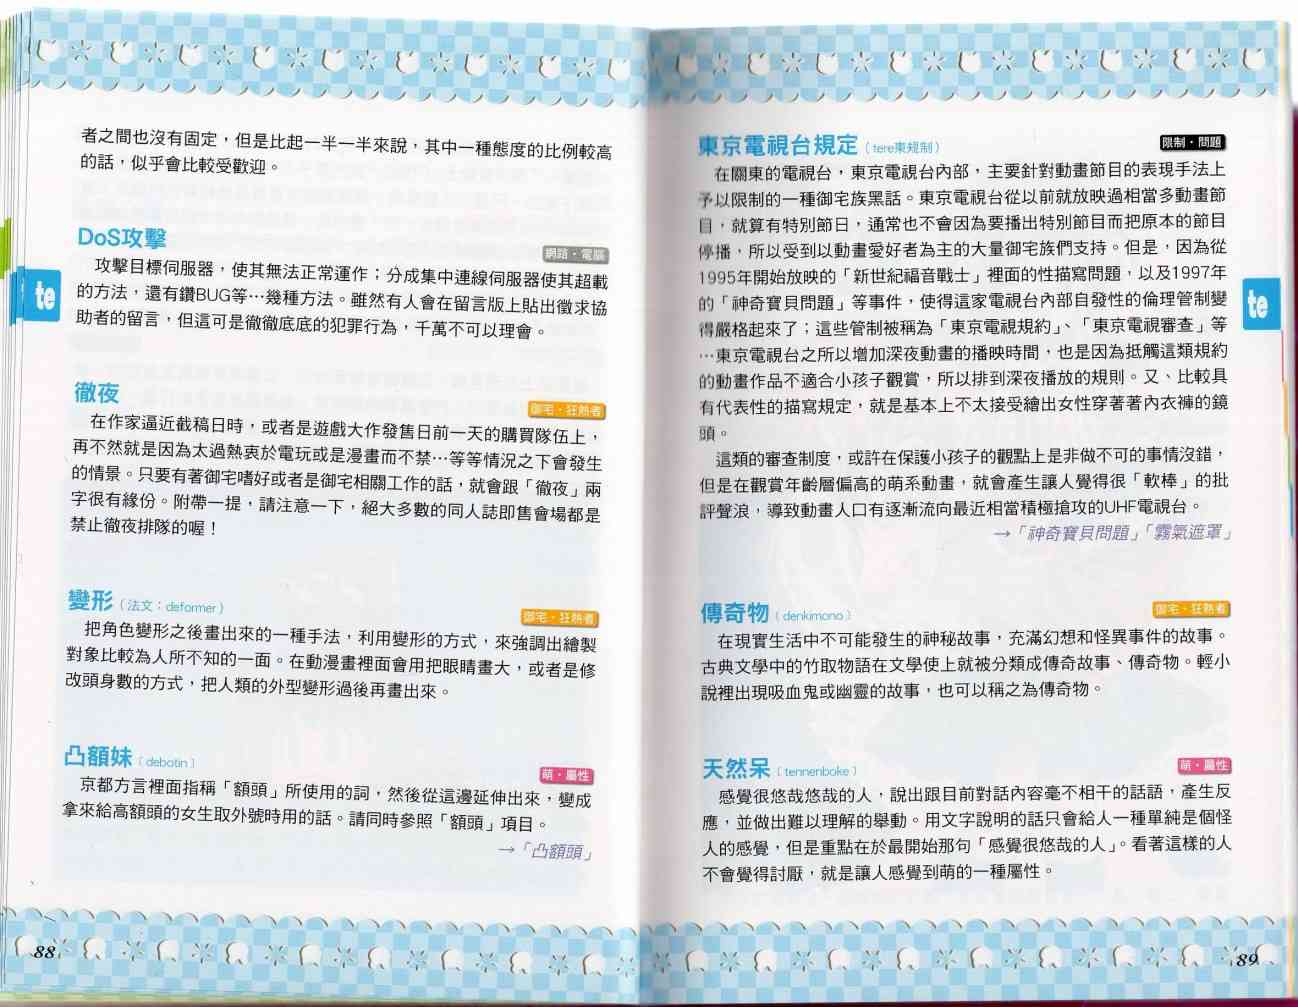 者之間也沒有固定，但是比起一半一半來說，其中一種態度的比例較高
的話，似乎會比較受歡迎。
DoS攻擊
網路・電腦
攻擊目標伺服器，使其無法正常運作；分成集中連線伺服器使其超載
的方法，還有鑽BUG等…幾種方法。雖然有人會在留言版上貼出徵求協
助者的留言，但這可是徹徹底底的犯罪行為，千萬不可以理會。
te
徹夜
御宅・狂熱者
在作家逼近截稿日時，或者是遊戲大作發售日前一天的購買隊伍上，
再不然就是因為太過熱衷於電玩或是漫畫而不禁…等等情況之下會發生
的情景。只要有著御宅嗜好或者是御宅相關工作的話，就會跟「徹夜」兩
字很有緣份。附帶一提，請注意一下，絕大多數的同人誌即售會場都是
禁止徹夜排隊的喔！
變形（法文：deformer）
御宅・狂熱者
把角色變形之後畫出來的一種手法，利用變形的方式，來強調出繪製
對象比較為人所不知的一面。在動漫畫裡面會用把眼睛畫大，或者是修
改頭身數的方式，把人類的外型變形過後再畫出來。
凸額妹（debotin）
萌・屬性
京都方言裡面指稱「額頭」所使用的詞，然後從這邊延伸出來，變成
拿來給高額頭的女生取外號時用的話。請同時參照「額頭」項目。
→「凸額頭」
88
東京電視台規定（tere東規制）
限制・問題
在關東的電視台，東京電視台內部，主要針對動畫節目的表現手法上
予以限制的一種御宅族黑話。東京電視台從以前就放映過相當多動畫節
目，就算有特別節日，通常也不會因為要播出特別節目而把原本的節目
停播，所以受到以動畫愛好者為主的大量御宅族們支持。但是，因為從
1995年開始放映的「新世紀福音戰士」裡面的性描寫問題，以及1997年
的「神奇寶貝問題」等事件，使得這家電視台內部自發性的倫理管制變
得嚴格起來了；這些管制被稱為「東京電視規約」、「東京電視審查」等
…東京電視台之所以增加深夜動畫的播映時間，也是因為抵觸這類規約
的動畫作品不適合小孩子觀賞，所以排到深夜播放的規則。又、比較具
有代表性的描寫規定，就是基本上不太接受繪出女性穿著著內衣褲的鏡
頭。
這類的審查制度，或許在保護小孩子的觀點上是非做不可的事情沒錯，
但是在觀賞年齡層偏高的萌系動畫，就會產生讓人覺得很「軟棒」的批
評聲浪，導致動畫人口有逐漸流向最近相當積極搶攻的UHF電視台。
→「神奇寶貝問題」「霧氣遮罩」
te
傳奇物（denkimono）
御宅・狂熱者
在現實生活中不可能發生的神秘故事，充滿幻想和怪異事件的故事。
古典文學中的竹取物語在文學使上就被分類成傳奇故事、傳奇物。輕小
說裡出現吸血鬼或幽靈的故事，也可以稱之為傳奇物。
天然呆（tennenboke）
萌・屬性
感覺很悠哉悠哉的人，說出跟目前對話內容毫不相干的話語，產生反
應，並做出難以理解的舉動。用文字說明的話只會給人一種單純是個怪
人的感覺，但是重點在於最開始那句「感覺很悠哉的人」。看著這樣的人
不會覺得討厭，就是讓人感覺到萌的一種屬性。
89